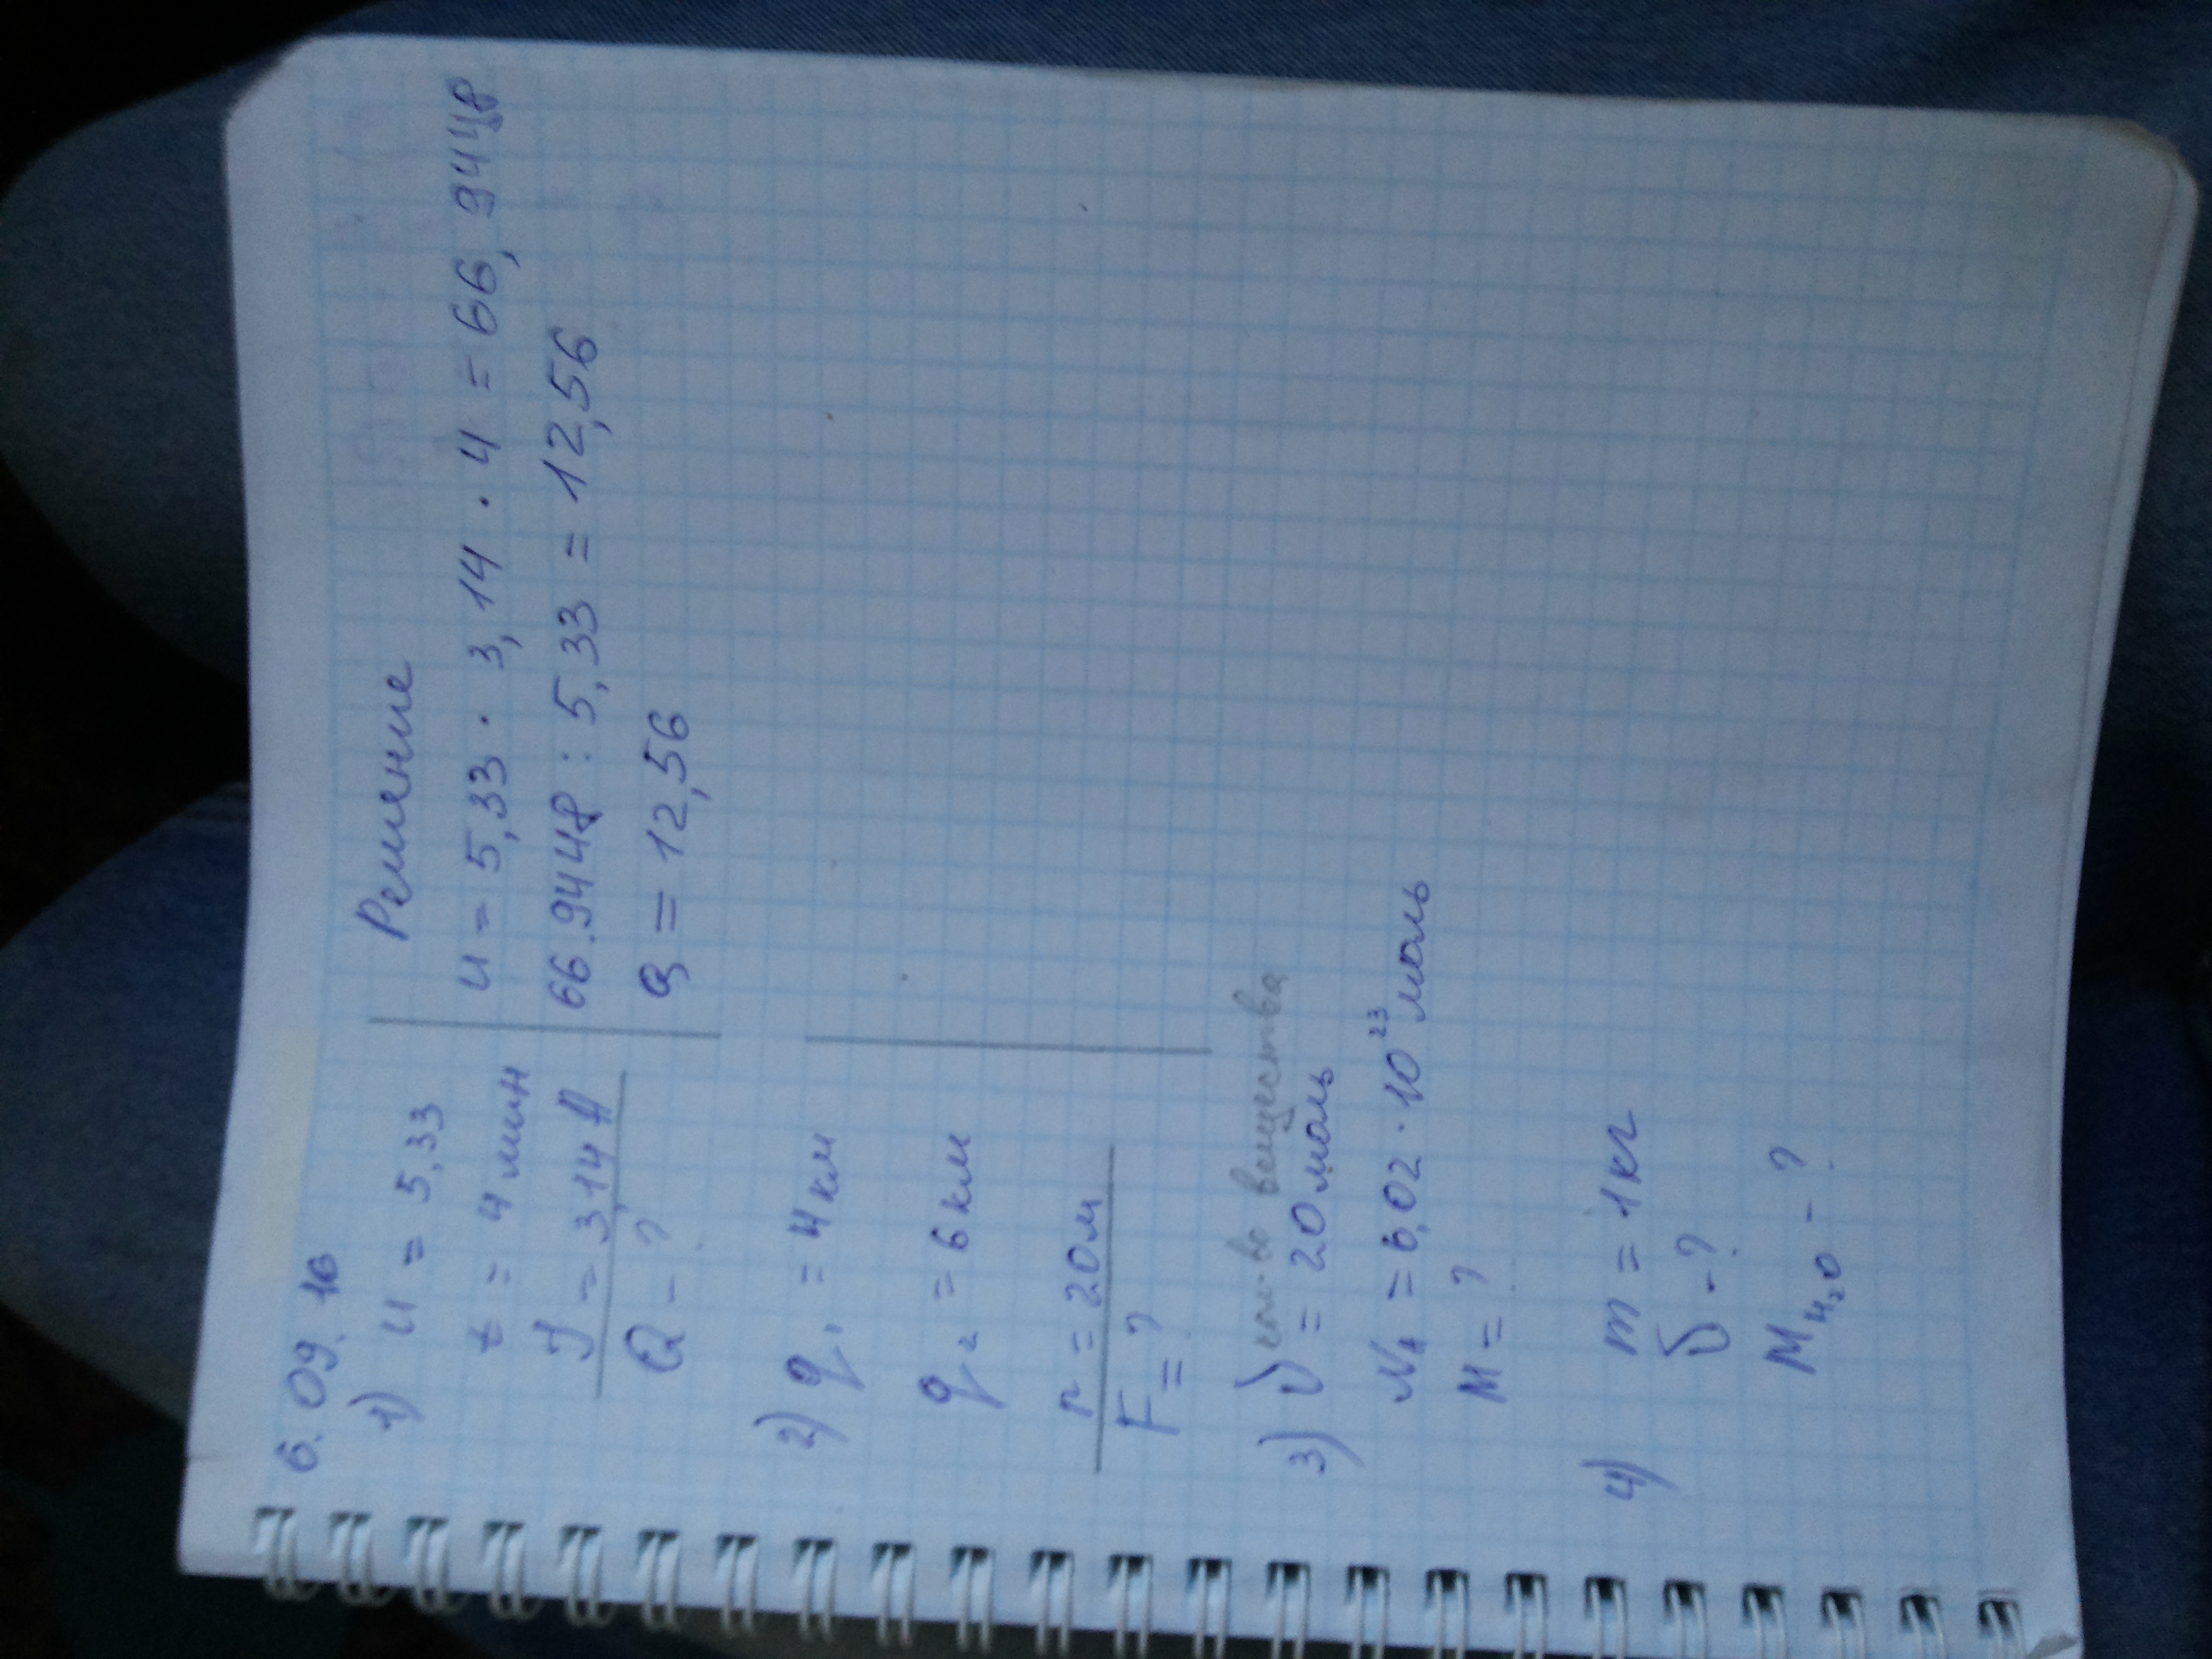 6. 09. 16
Решение
1) u = 5,33
t = 4 мин
J = 3,14 A
Q - ?
u = 5,33 · 3,14 · 4 = 66,9448
66.9448 : 5,33 = 12,56
Q = 12,56
2) q₁ = 4 км
q₂ = 6 км
r = 20м
F = ?
кол-во вещества
3) υ = 20 моль
Nₐ = 6,02 · 10²³ моль
M = ?
4) m = 1кг
υ - ?
M н₂о - ?